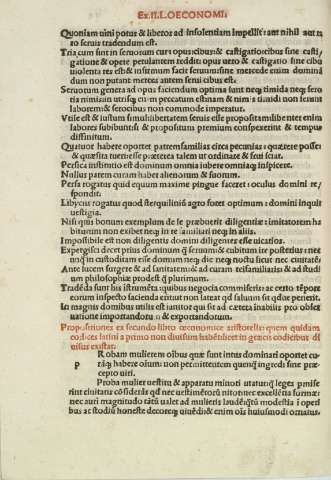 Ex.II.L.OECONOMI:
Quoniam uini potus & liberos ad insolentiam impellit: aut nihil aut ra
ro seruis tradendum est.
Tria cum sint in seruorum cura opus cibus: & castigatio: cibus sine casti
gatione & opere petulantem reddit: opus uero & castigatio sine cibo
uiolenta res est: & infirmum facit seruum: sine mercede enim domina
dum non putant: merces autem serui cibus est.
Seruorum genera ad opus faciendum optima sunt neque timida neque fero
tia nimium utrique enim peccatum & nam & nimis timidi non ferunt
laborem: & ferocibus non commode imperatur.
Vtile est & iustum simul: libertatem seruis esse propositam: libenter enim
labores subibunt: si & propositum premium conspexerint & tempus
diffinitum.
Quatuor habere oportet patremfamilias circa pecunias: & quærere posse:
& quæsita tueri: esse præterea talem ut ordinate & frui sciat.
Persica institutio est dominum omnia iubere omniaque inspicere.
Nullus parem curam habet alienorum & suorum.
Persa rogatus quid equum maxime pingue faceret: oculus domini re/
spondit.
Libycus rogatus quod sterquilinium agro foret optimum: domini inquit
uestigia.
Nisi quis bonum exemplum de se præbuerit diligentiæ: imitatorem ha
biturum non exibet neque in re familiari neque in aliis.
Impossibile est non diligentis domini diligentes esse uicarios.
Expergisci decet prius dominum quam seruum: & cubitum ire posterius: nec
unquam in custoditam esse domum neque die neque noctu sicut nec ciuitatem.
Ante lucem surgere & ad sanitatem: & ad curam rei familiaris & ad studi
um philosophiæ prodest quam plurimum.
Tradenda sunt sua instrumenta quibus negocia commiseris: ac certo tempore
eorum inspectio facienda
In magnis domibus utilis est ianitor
uationem importandorum & exportandorum.
Propositiones ex secundo libro œconomice aristotelis: quem quidam
codices latini a primo non diuisum habent: licet in græcis codicibus di
uisus extat.
p
Robam mulierem oibus quæ sunt intus dominari oportet cu-
ramque habere oium: non permittentem quenquam ingredi sine præ
cepto uiri.
Proba mulier uestitu & apparatu minori utatur quam leges permise
rint ciuitatis: considerans quod nec uestimentorum nitor nec excellentia formæ:
nec auri magnitudo tantum ualet ad mulieris laudem quantum modestia in operi
bus ac studium honeste decoreque uiuendi: & enim ois huiusmodi ornatus.